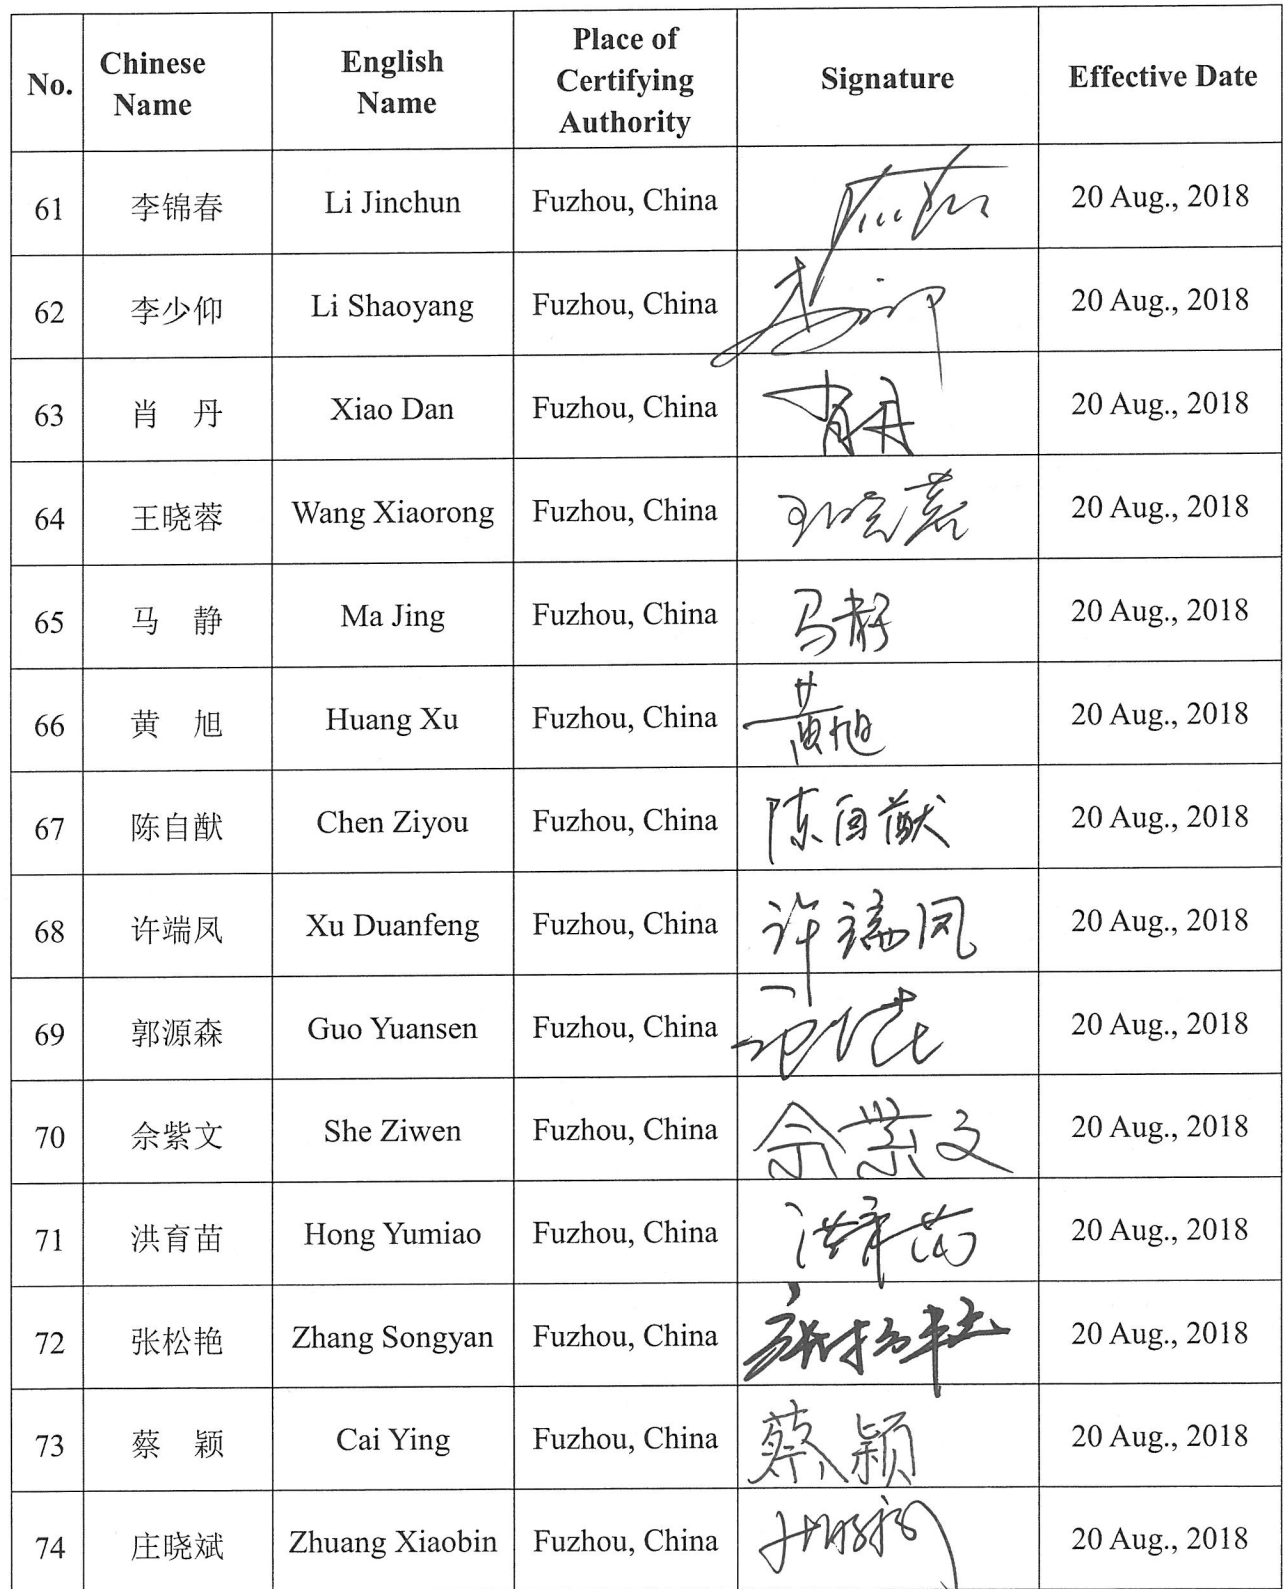 No.
Chinese
Name
English
Name
Place of
Certifying
Authority
Signature
Effective Date
61 李锦春 Li Jinchun Fuzhou, China 20 Aug., 2018
62 李少仰 Li Shaoyang Fuzhou, China 20 Aug., 2018
63 肖 丹 Xiao Dan Fuzhou, China 肖丹 20 Aug., 2018
64 王晓蓉 Wang Xiaorong Fuzhou, China 王晓蓉 20 Aug., 2018
65 马 静 Ma Jing Fuzhou, China 马静 20 Aug., 2018
66 黄 旭 Huang Xu Fuzhou, China 黄旭 20 Aug., 2018
67 陈自猷 Chen Ziyou Fuzhou, China 陈自猷 20 Aug., 2018
68 许端凤 Xu Duanfeng Fuzhou, China 许端凤 20 Aug., 2018
69 郭源森 Guo Yuansen Fuzhou, China 20 Aug., 2018
70 佘紫文 She Ziwen Fuzhou, China 佘紫文 20 Aug., 2018
71 洪育苗 Hong Yumiao Fuzhou, China 洪育苗 20 Aug., 2018
72 张松艳 Zhang Songyan Fuzhou, China 20 Aug., 2018
73 蔡 颖 Cai Ying Fuzhou, China 蔡颖 20 Aug., 2018
74 庄晓斌 Zhuang Xiaobin Fuzhou, China 20 Aug., 2018